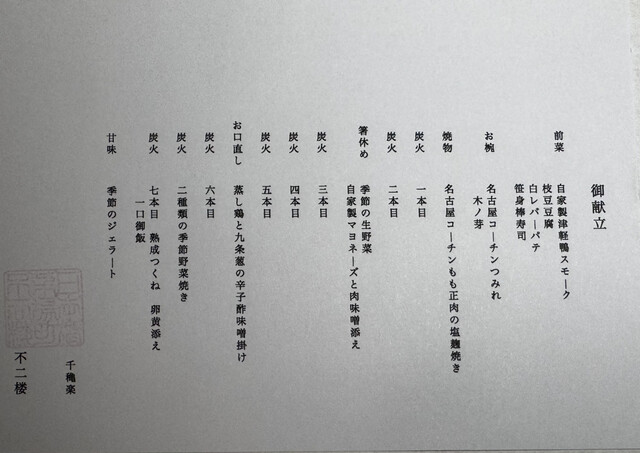 御献立
前菜 自家製津軽鴨スモーク
枝豆豆腐
白レバーパテ
笹身棒寿司
お椀 名古屋コーチンつみれ
木ノ芽
焼物 名古屋コーチンもも正肉の塩麹焼き
炭火 一本目
炭火 二本目
箸休め 季節の生野菜
自家製マヨネーズと肉味噌添え
炭火 三本目
炭火 四本目
炭火 五本目
お口直し 蒸し鶏と九条葱の辛子酢味噌掛け
炭火 六本目
炭火 二種類の季節野菜焼き
炭火 七本目 熟成つくね 卵黄添え
一口御飯
甘味 季節のジェラート
千穐楽
不二楼